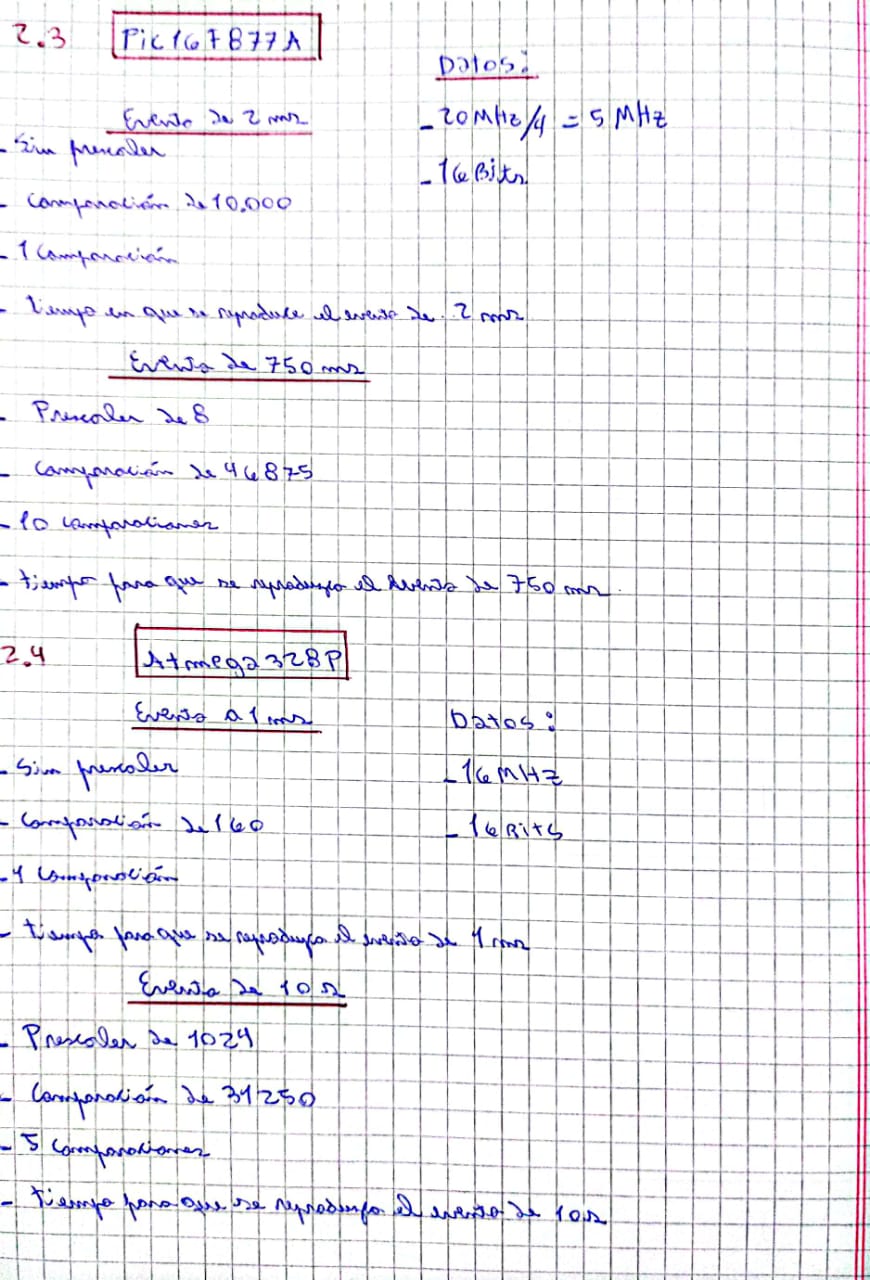 2.3 Pic16F877A
Datos:
Evento de 2 ms
- 20 MHz/4 = 5 MHz
- Sin prescaler
- 16 Bits
- Comparación de 10.000
- 1 Comparación
- tiempo en que se reproduce el evento de 2 ms
Evento de 750 ms
- Prescaler de 8
- Comparación de 46875
- 10 comparaciones
- tiempo para que se reproduzca el evento de 750 ms
2.4 Atmega328P
Evento a 1 ms
Datos:
- Sin prescaler
- 16 MHz
- Comparación de 160
- 16 Bits
- 1 Comparación
- tiempo para que se reproduzca el evento de 1 ms
Evento de 10 s
- Prescaler de 1024
- Comparación de 31250
- 5 Comparaciones
- tiempo para que se reproduzca el evento de 10 s